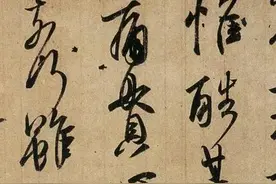 惟酷甚
痛貫
奈何雖